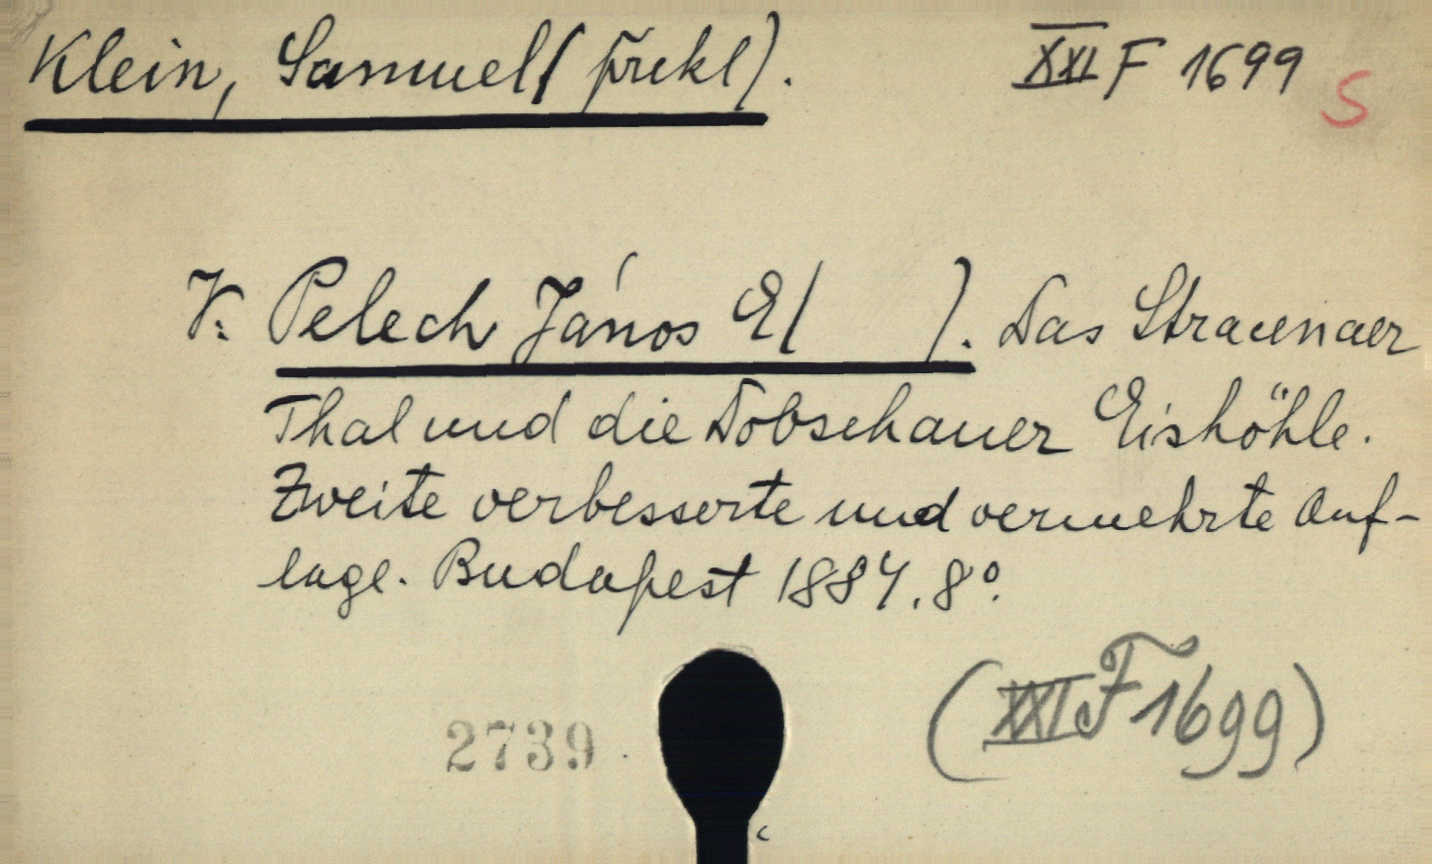 Klein, Samuel (překl).
XXI F 1699
S
V: Pelech János E( ). Das Stracenaer
Thal und die Dobschauer Eishöhle.
Zweite verbesserte und vermehrte Auf-
lage. Budapest 1884. 8°.
(XXI F 1699)
2739